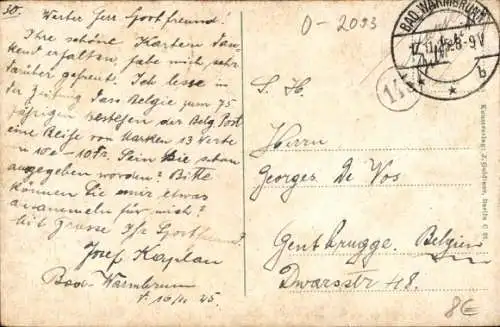 30.
Werter Herr Sportfreund!
Ihre schöne Karten dan-
kend erhalten, habe mich sehr
darüber gefreut. Ich lese in
der Zeitung dass Belgie zum 75
jährigen bestehen der Belg Post
eine Reihe von Marken 13 Werte
v 10 c - 10 Fr. Sein Sie schon
ausgegeben worden? Bitte
können Sie mir etwas
ansammeln für mich?
Mit Grusse Ihr Sportfreund
Josef Kaplan
Bad-Warmbrunn
16/11 25.
0-2093
BAD WARMBRUNN
8-9V
* b
14
S. H.
Herrn
Georges De Vos
Gentbrugge. Belgien
Dwarsstr 48.
Kunstverlag J. Goldiner, Berlin C
8€